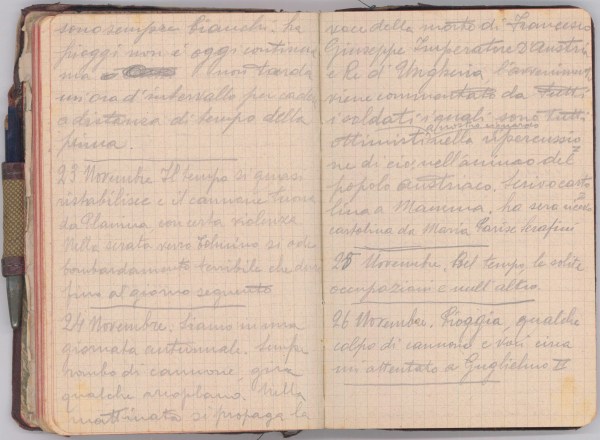 sono sempre bianchi. ha
pioggi non è oggi continua
ma non tarda
un'ora d'intervallo per cada
a distanza di tempo della
prima.
23 Novembre. Il tempo si quasi
ristabilisce e il cannone tuona
da Plamina con certa violenza
Nella serata verso Tolmino si ode
bombardamento terribile che dura
fino al giorno seguente
24 Novembre. Siamo in una
giornata autunnale. Sempre
rombo di cannone, gira
qualche aroplano. Nella
mattinata si propaga la
voce della morte di Francesco
Giuseppe Imperatore D'Austria
e Re di Ungheria, l'avvenimento
viene commentato da tutti
i soldati i quali sono tutti
ottimisti a nostro riguardo nella ripercussio
ne di ciò, nell'animo del
popolo austriaco. Scrivo carto
lina a Mamma, ha sera ricevo
cartolina da Maria Parise Serafini
25 Novembre. Bel tempo, le solite
occupazioni e null'altro.
26 Novembre. Pioggia, qualche
colpo di cannone e voci circa
un attentato a Guglielmo II